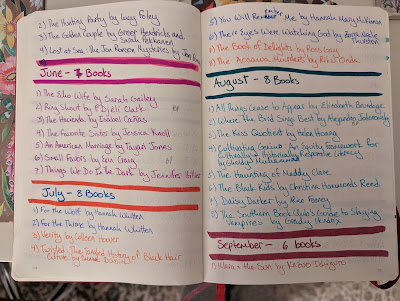 2) The Hunting Party by Lucy Foley
3) The Golden Couple by Greer Hendricks and
Sarah Pekkanen
4) Lost at Sea: The Jon Ronson Mysteries by Jon
June - 7 Books
1) The Echo Wife by Sarah Gailey
2) Ring Shout by P. Djèlí Clark
3) The Hacienda by Isabel Cañas
4) The Favorite Sister by Jessica Knoll
5) An American Marriage by Tayari Jones
6) Small Favors by Erin Craig
7) Things We Do in the Dark by Jennifer Hillier
July - 8 Books
1) For the Wolf by Hannah Whitten
2) For the Throne by Hannah Whitten
3) Verity by Colleen Hoover
4) Twisted: The Tangled History of Black Hair
Culture by Emma Dabiri
5) You Will Remember Me by Hannah Mary McKinnon
6) Their Eyes Were Watching God by Zora Neale
Hurston
7) The Book of Delights by Ross Gay
8) The Aosawa Murders by Riku Onda
August - 8 Books
1) All Things Cease to Appear by Elizabeth Brundage
2) Where the Bird Sings Best by Alejandro Jodorowsky
3) The Kiss Quotient by Helen Hoang
4) Cultivating Genius: An Equity Framework for
Culturally + Historically Responsive Literacy
by Gholdy Muhammad
5) The Haunting of Maddy Clare
6) The Black Kids by Christina Hammonds Reed
7) Daisy Darker by Alice Feeney
8) The Southern Book Club's Guide to Slaying
Vampires by Grady Hendrix
September - 6 books
1) Klara + the Sun by Kazuo Ishiguro